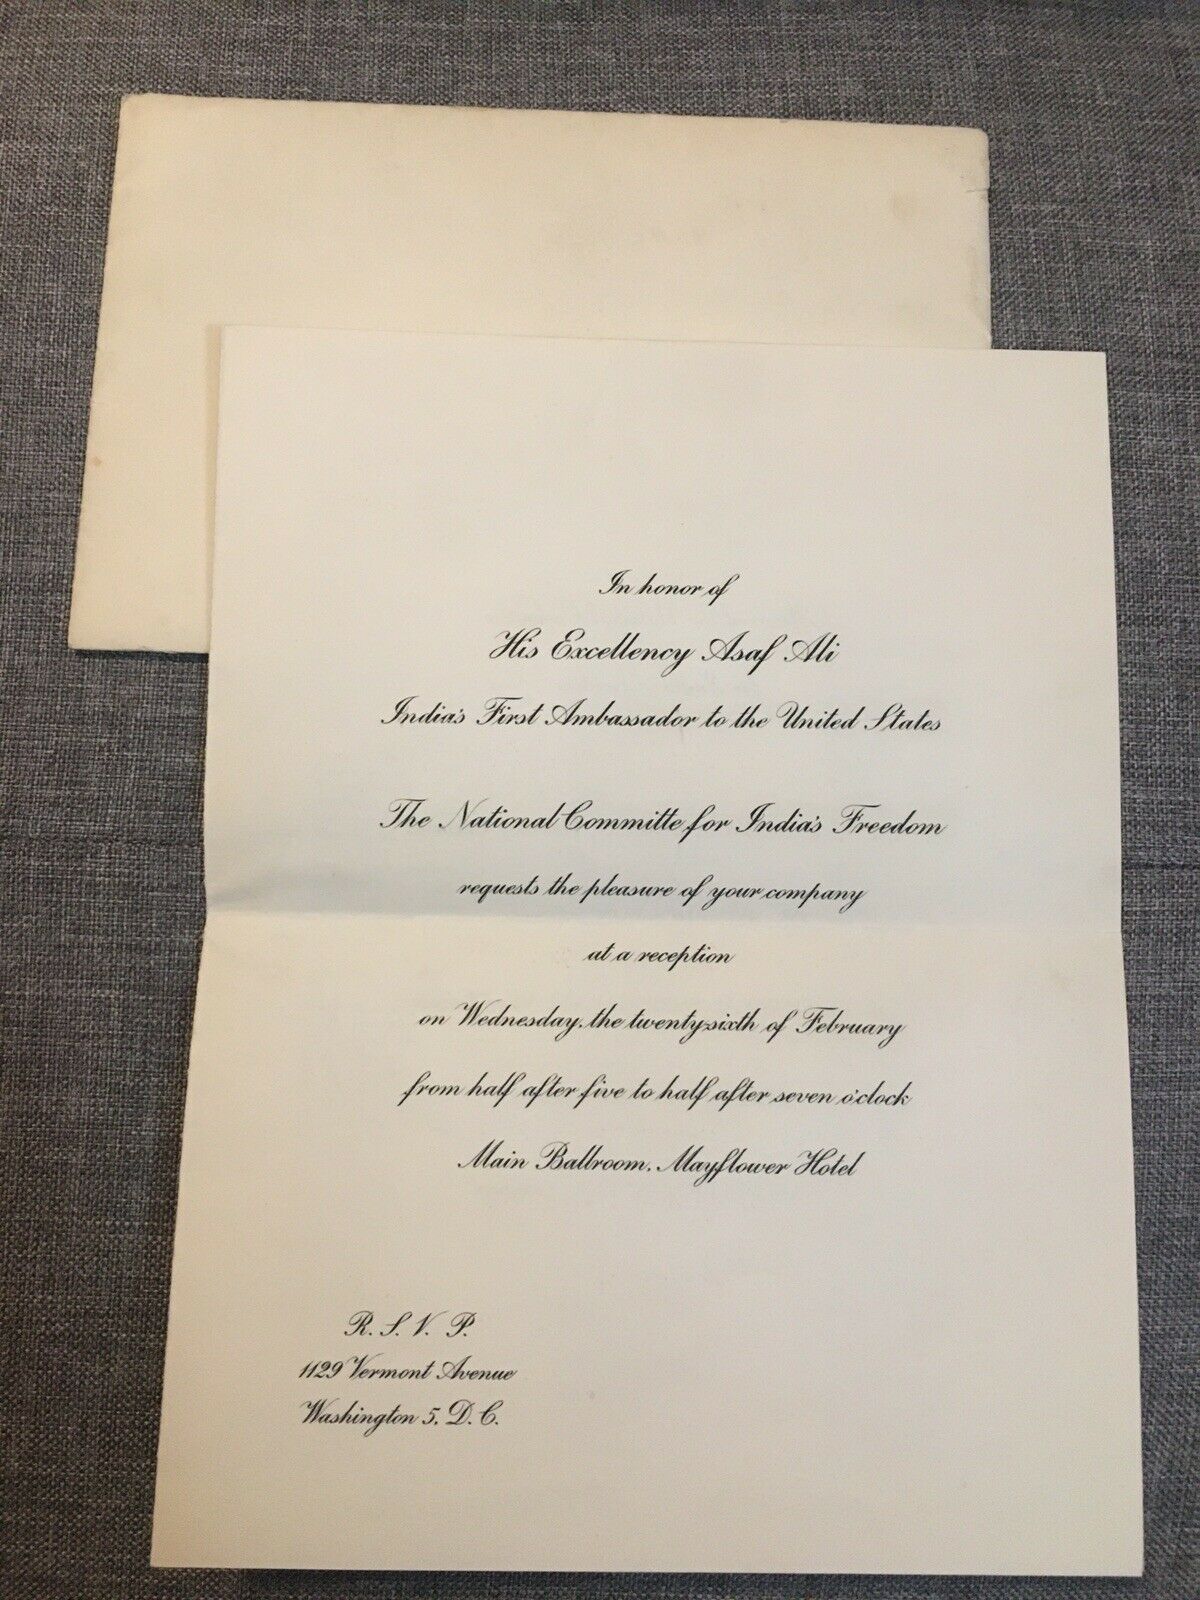 In honor of
His Excellency Asaf Ali
India's First Ambassador to the United States
The National Committe for India's Freedom
requests the pleasure of your company
at a reception
on Wednesday, the twenty-sixth of February
from half after five to half after seven o'clock
Main Ballroom, Mayflower Hotel
R. S. V. P.
1129 Vermont Avenue
Washington 5, D. C.